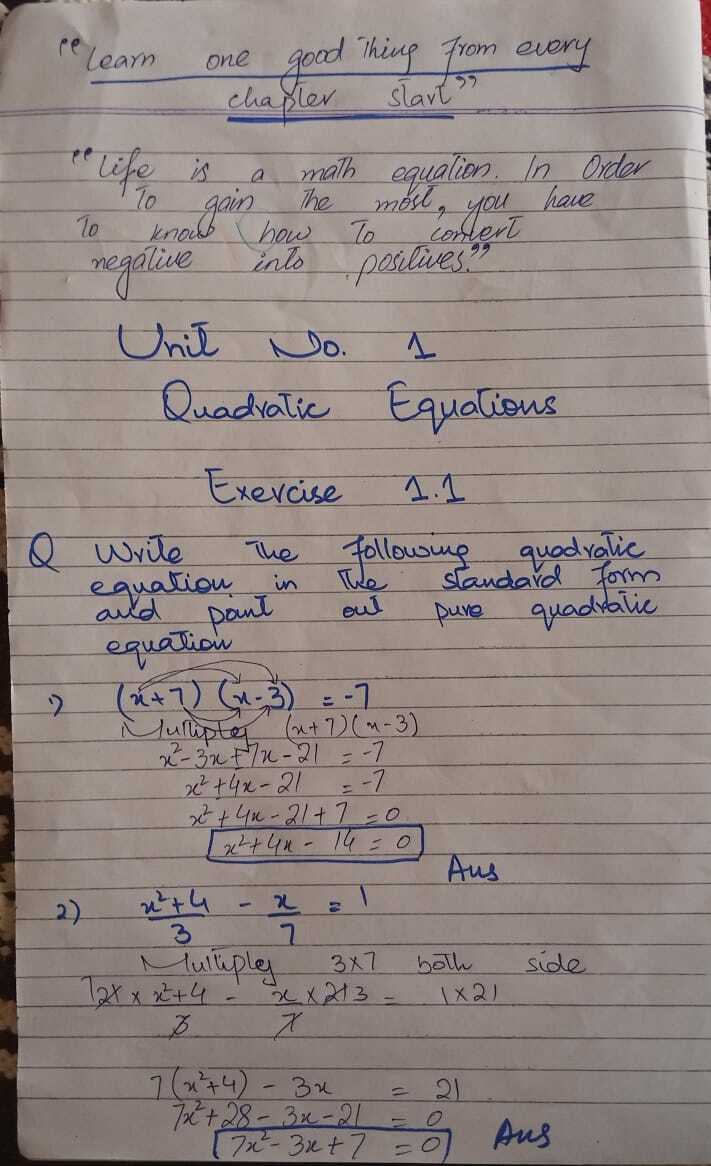 "Learn one good Thing from every
chapter start"
"Life is a math equation. In Order
To gain the most, you have
To know how To convert
negative into positives."
Unit No. 1
Quadratic Equations
Exercise 1.1
Q Write The following quadratic
equation in The standard form
and point out pure quadratic
equation
1) (x+7) (x-3) = -7
Multiply (x+7)(x-3)
x²-3x+7x-21 = -7
x²+4x-21 = -7
x²+4x-21+7 = 0
x²+4x-14 = 0
Ans
2) x²+4/3 - x/7 = 1
Multiply 3x7 both side
7 21 x x²+4/3 - x x 21 3/7 = 1x21
7(x²+4) - 3x = 21
7x²+28-3x-21 = 0
7x²-3x+7 = 0 Ans